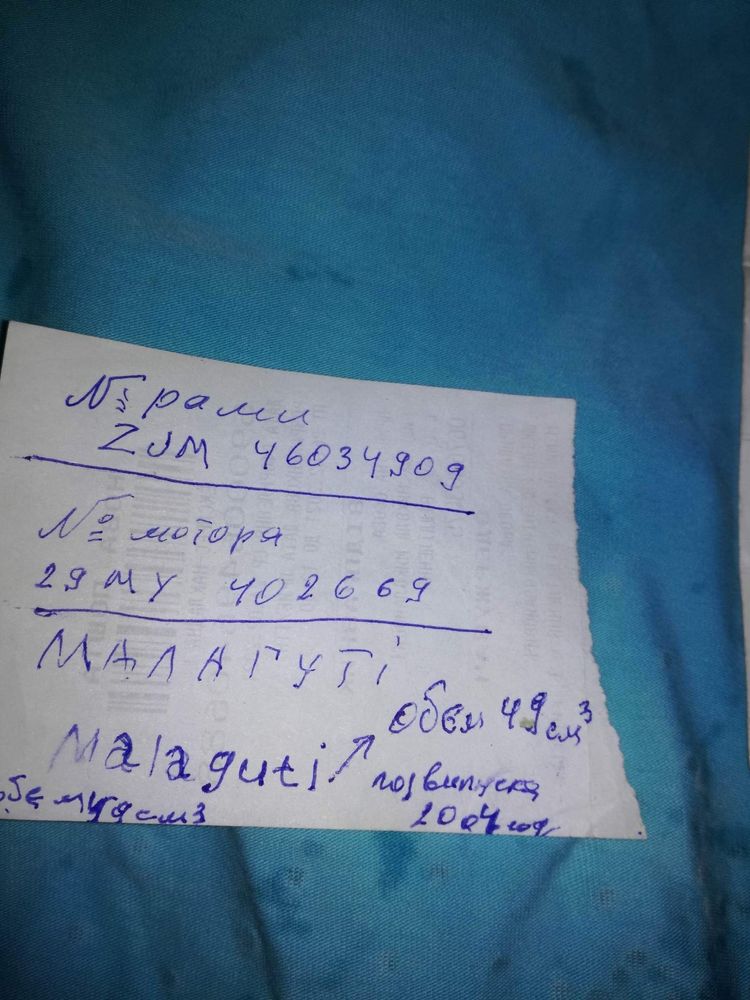 № рами
ZJM 46034909
№ мотора
29 MY 402669
МАЛАГУТІ
Обєм 49 см³
Malaguti ↗
год випуска
2004 год
обєм 49 см3